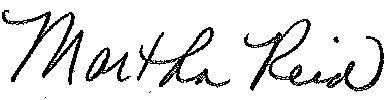 Martha Reid